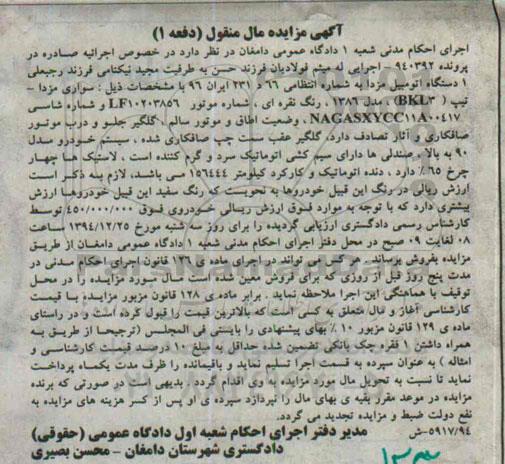 آگهی مزایده مال منقول (دفعه ۱)
اجرای احکام مدنی شعبه ۱ دادگاه عمومی دامغان در نظر دارد در خصوص اجرائیه صادره در
پرونده ۹۴۰۳۹۲ – اجرایی له میثم فولادیان فرزند حسن به طرفیت مجید نیکنامی فرزند رجبعلی
۱ دستگاه اتومبیل مزدا به شماره انتظامی ۶۶ د ۲۳۱ ایران ۹۶ با مشخصات ذیل : سواری مزدا –
تیپ ( BKL۳) ، مدل ۱۳۸۶ ، رنگ نقره ای ، شماره موتور LF۱۰۲۰۳۸۵۶ و شماره شاسی
NAGASXYCC۱۱A۰۰۴۱۷ ، وضعیت اطاق و موتور سالم ، گلگیر جلو و درب موتور
صافکاری و آثار تصادف دارد. گلگیر عقب سمت چپ صافکاری شده ، سیستم خودرو مدل
۹۰ به بالا ، صندلی ها دارای سیم کشی اتوماتیک سرد و گرم کننده است ، لاستیک ها چهار
چرخ ۶۵٪ دارد ، دنده اتوماتیک و کارکرد کیلومتر ۱۵۶۴۴۴ می باشد، لازم به ذکر است
ارزش ریالی در رنگ این قبیل خودروها به نحویست که رنگ سفید این قبیل خودروها ارزش
بیشتری دارد که با توجه به موارد فوق ارزش ریالی خودروی فوق ۴۵۰/۰۰۰/۰۰۰ توسط
کارشناس رسمی دادگستری ارزیابی گردیده را برای روز سه شنبه مورخ ۱۳۹۴/۱۲/۲۵ ساعت
۰۸ لغایت ۰۹ صبح در محل دفتر اجرای احکام مدنی شعبه ۱ دادگاه عمومی دامغان از طریق
مزایده بفروش برساند . هر کس می تواند در اجرای ماده ی ۱۲۶ قانون اجرای احکام مدنی در
مدت پنج روز قبل از روزی که برای فروش معین شده است مال مورد مزایده را در محل
توقیف با هماهنگی این اجرا ملاحظه نماید . برابر ماده ی ۱۲۸ قانون مزبور مزایده با قیمت
کارشناسی آغاز و مال متعلق به کسی است که بالاترین قیمت را قبول کرده است و در راستای
ماده ی ۱۲۹ قانون مزبور ۱۰ ٪ بهای پیشنهادی را بایستی فی المجلس (ترجیحا از طریق به
همراه داشتن ۱ فقره چک بانکی تضمین شده حداقل به مبلغ ۱۰ درصد قیمت کارشناسی و
امثاله ) به عنوان سپرده به قسمت اجرا تسلیم نماید و باقیمانده را ظرف مدت یکماه پرداخت
نماید تا نسبت به تحویل مال مورد مزایده به وی اقدام گردد . بدیهی است در صورتی که برنده
مزایده در موعد مقرر بقیه ی بهای مال را نپردازد سپرده ی او پس از کسر هزینه های مزایده به
نفع دولت ضبط و مزایده تجدید می گردد.
۵۹۱۷/۹۴–ش مدیر دفتر اجرای احکام شعبه اول دادگاه عمومی (حقوقی)
دادگستری شهرستان دامغان – محسن بصیری